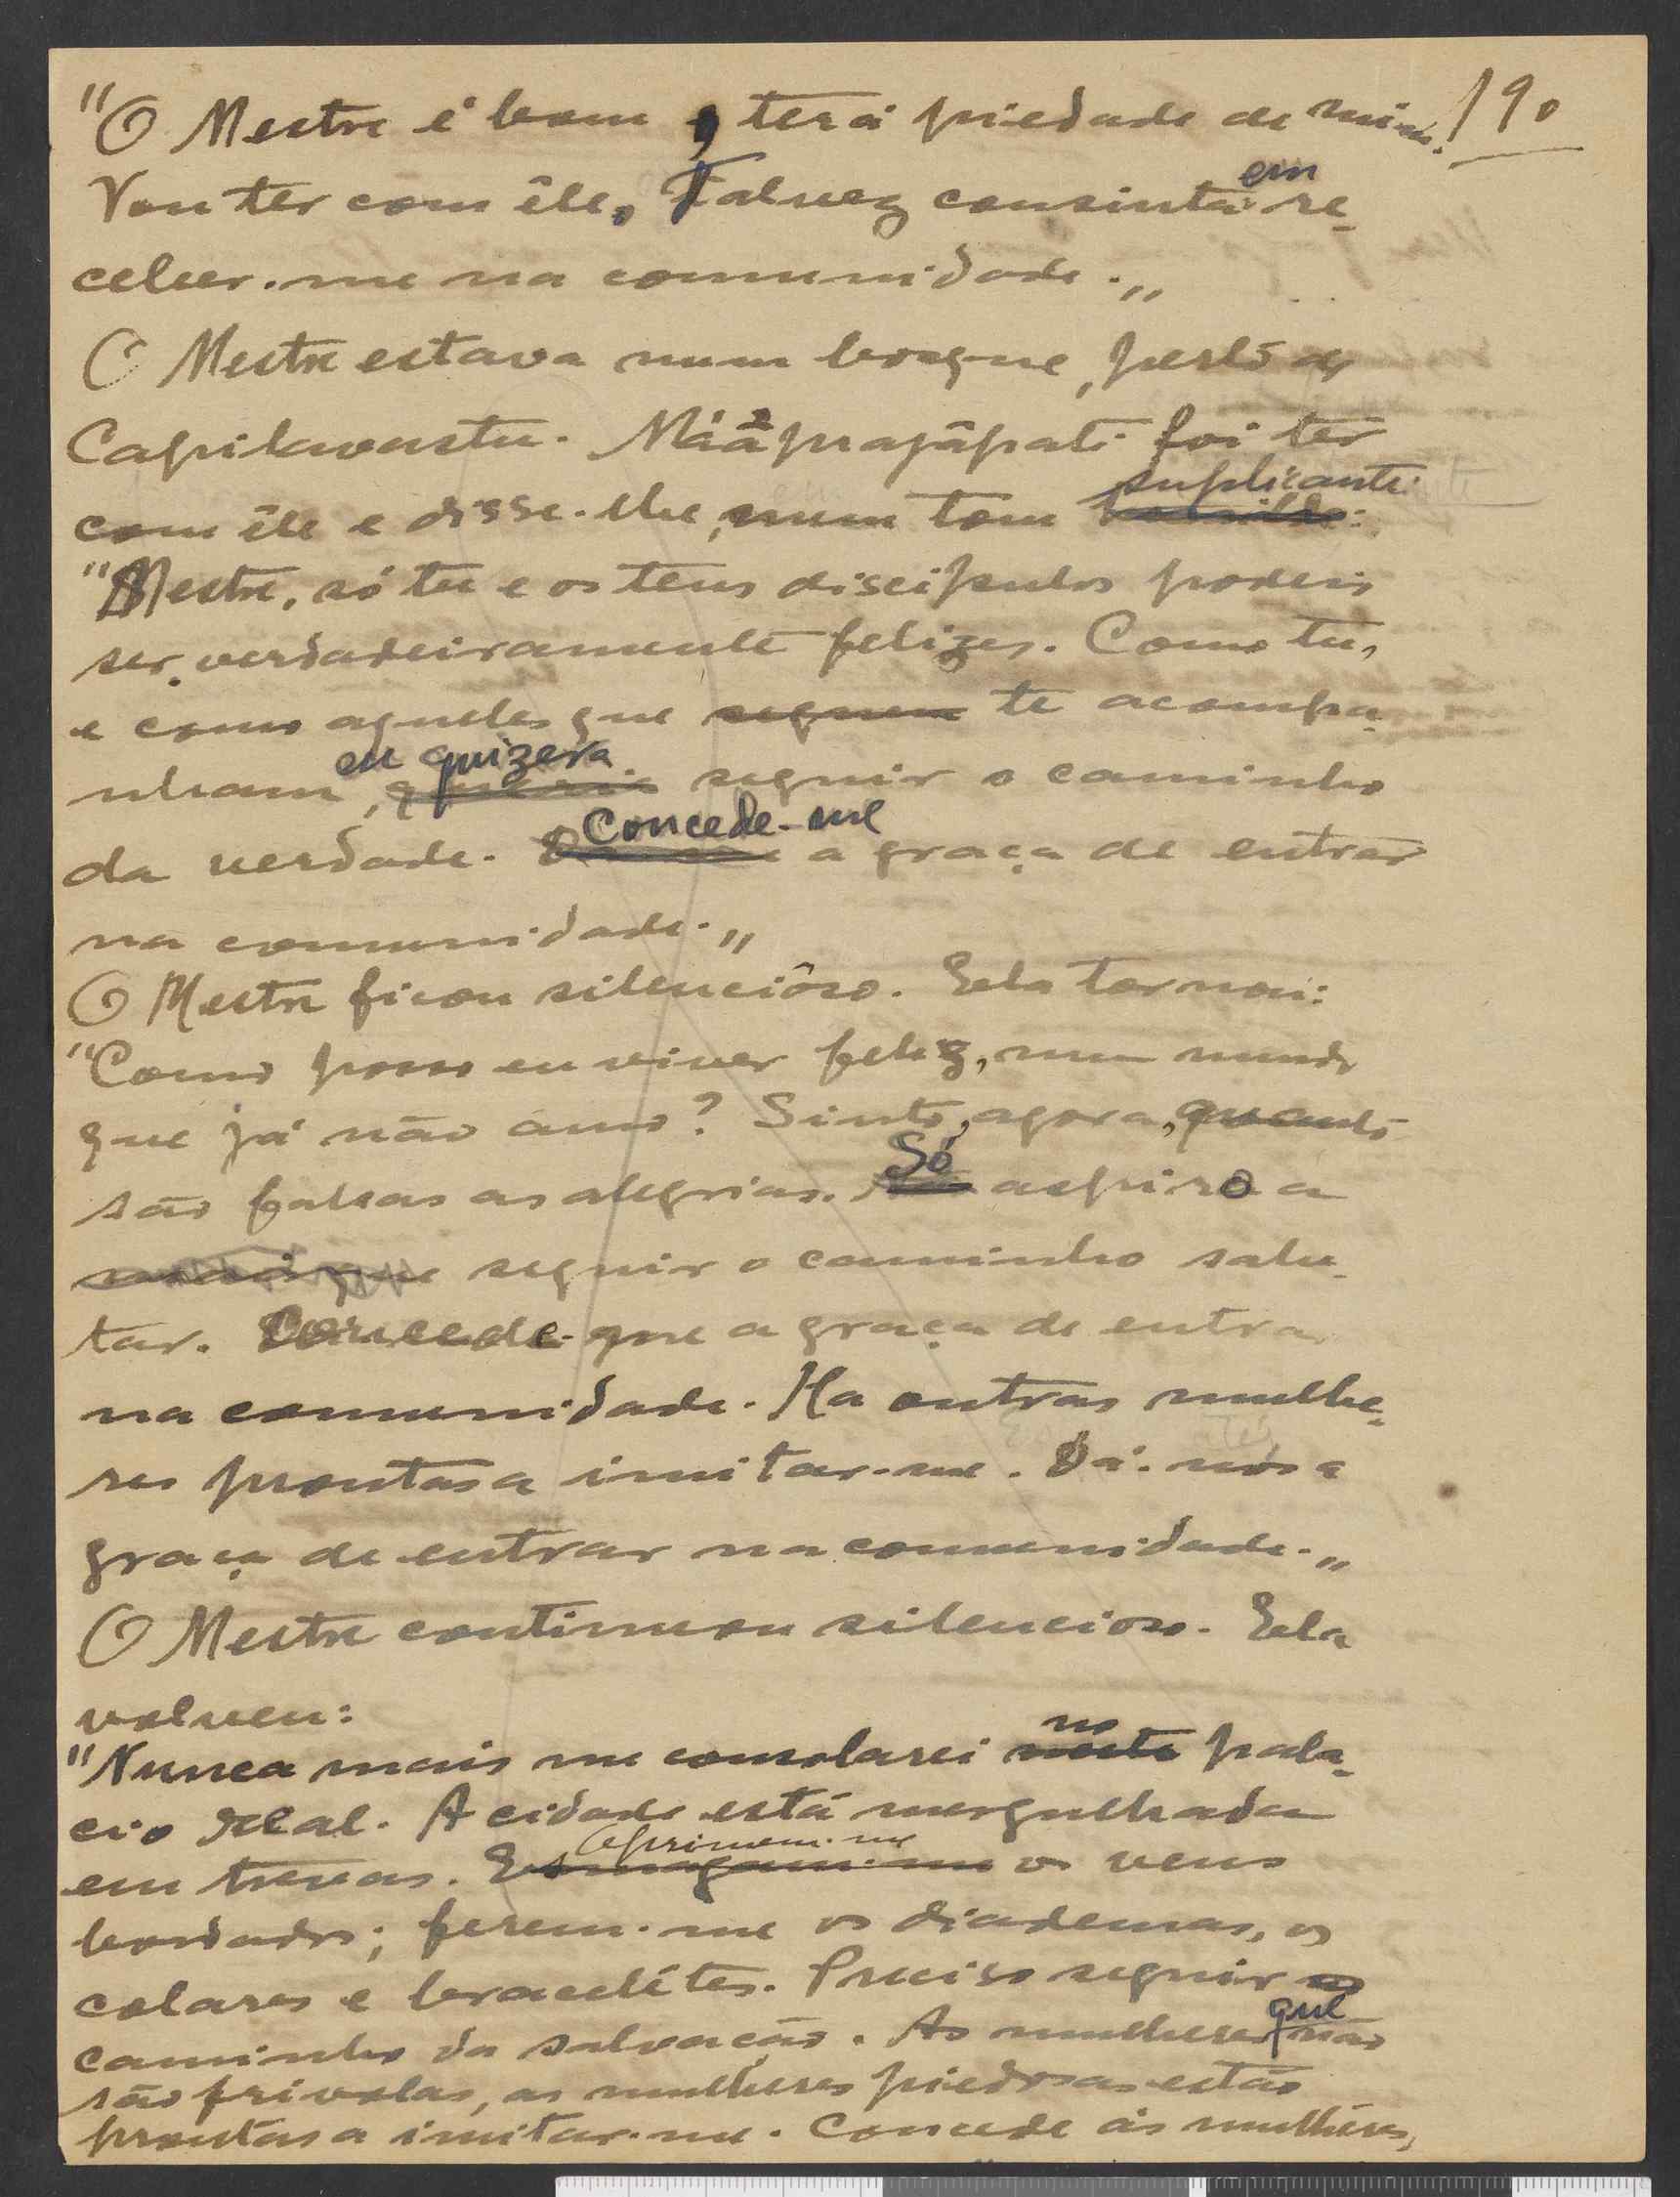 "O Mestre é bom, terá piedade de mim. 190
Vou ter com êle. Talvez consinta em re-
ceber-me na comunidade."
O Mestre estava num bosque, perto de
Capilavastu. Mááprajâpati foi ter
com êle e disse-lhe, num tom suplicante:
"Mestre, só tu e os teus discipulos podeis
ser verdadeiramente felizes. Como tu,
e como aqueles que seguem te acompa-
nham, eu quizera seguir o caminho
da verdade. Concede-me a graça de entrar
na comunidade."
O Mestre ficou silenciôso. Ela tornou:
"Como posso eu viver feliz, num mundo
que já não amo? Sinto, agora, quanto
são falsas as alegrias. Só aspiro a
seguir o caminho salu-
tar. Concede-me a graça de entrar
na comunidade. Ha outras mulhe-
res prontas a imitar-me. Dá-nos a
graça de entrar na comunidade."
O Mestre continuou silencioso. Ela
volveu:
"Nunca mais me consolarei no neste pala-
cio real. A cidade está mergulhada
em trevas. Oprimem-me Esmagam-me os veus
bordados; ferem-me os diademas, os
colares e bracelétes. Preciso seguir o
caminho da salvação. As mulheres que não
são frivolas, as mulheres piedosas estão
prontas a imitar-me. Concede ás mulhéres,